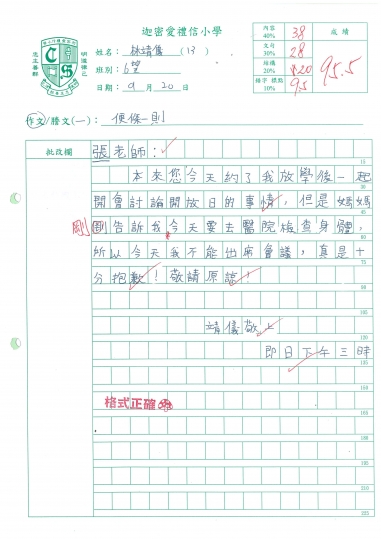 迦密愛禮信小學
姓名： 林靖儀 (13)
班別： 6望
日期： 9 月 20 日
內容 40% 38
文句 30% 28
組織 20% 20
錯字 標點 10% 9.5
成績
95.5
作文/謄文(一)： 便條一則
批改欄
張老師：
本來您今天約了我放學後一起
開會討論開放日的事情，但是媽媽
剛
剛告訴我今天要去醫院檢查身體，
所以今天我不能出席會議，真是十
分抱歉！敬請原諒！
靖儀敬上
即日下午三時
格式正確
15
30
45
60
75
90
105
120
135
150
165
180
195
210
225